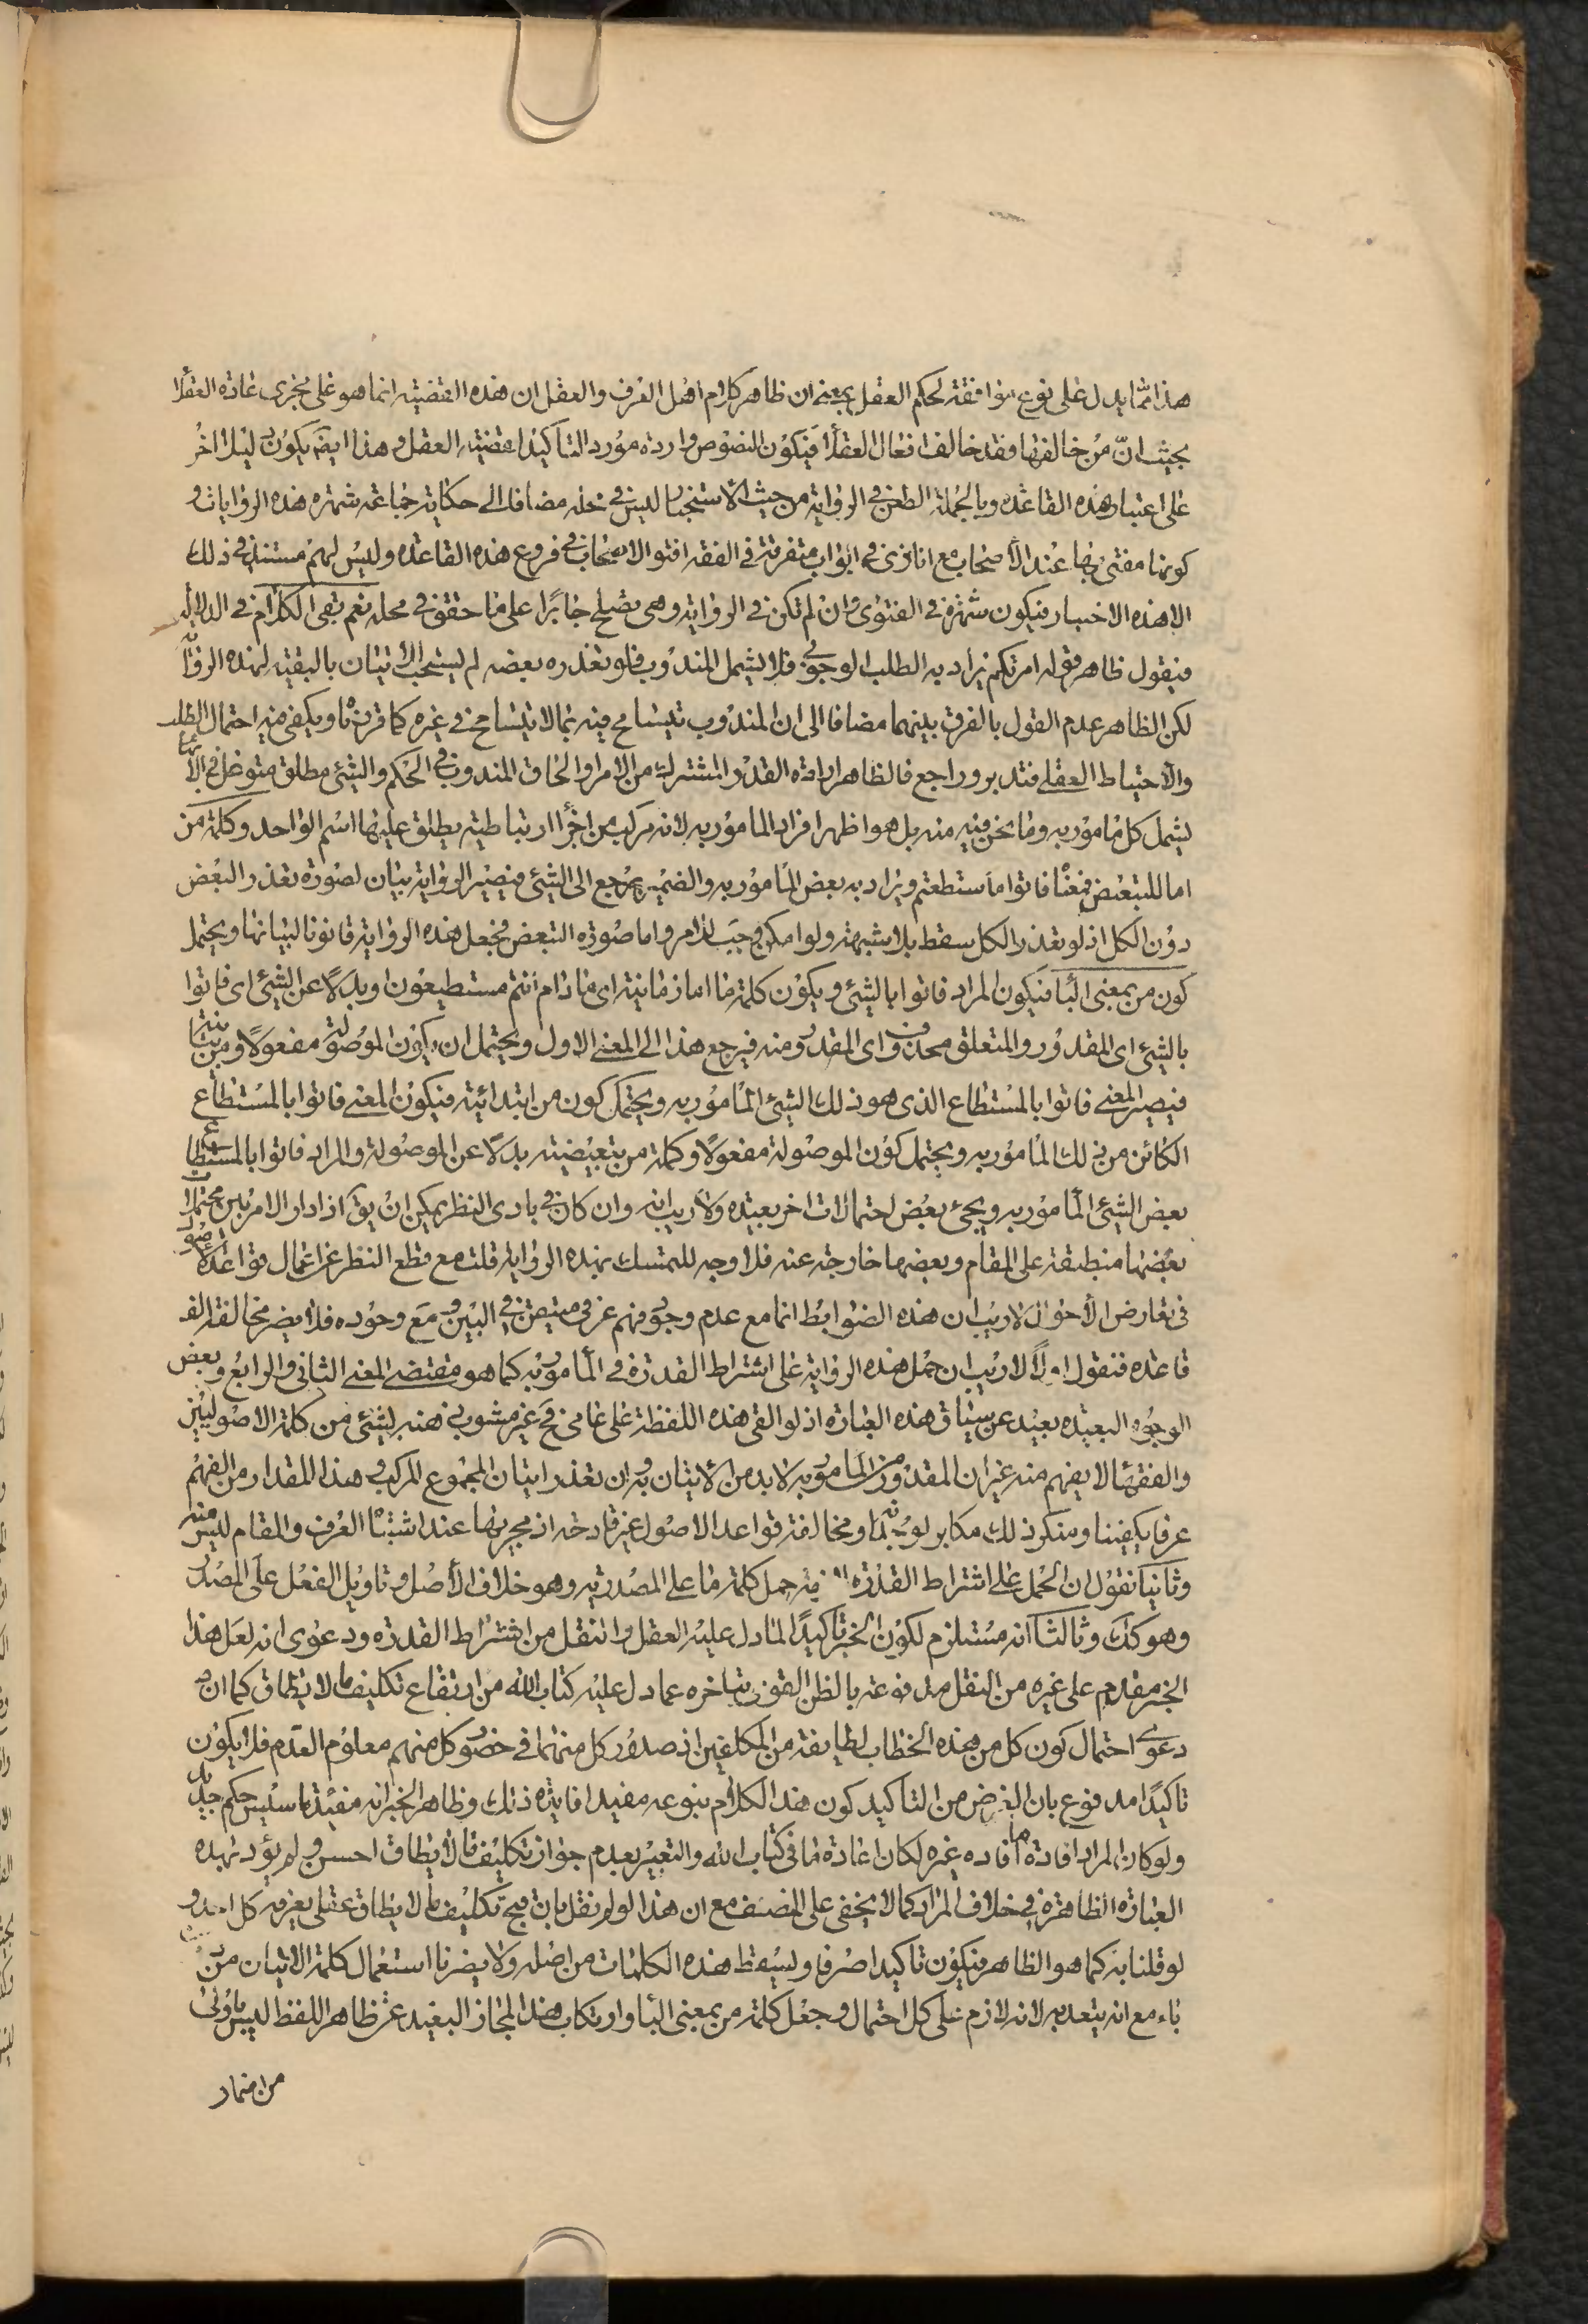 هذا مما يدل على نوع موافقة لحكم العقل بمعنى ان ظاهر كلام اهل العرف والعقل ان هذه القضيته انما هو على مجرى عادة العقلا
بحيث انّ من خالفها فقد خالف افعال العقلا فيكون النصوص واردة مورد التاكيد لقضية العقل وهذا ايضم يكون دليلا اخر
على اعتبار هذه القاعده وبالجملة الطعن في الرواية من حيث الاستنجبار ليس في محله مضافا الى حكاية جماعة شهره هذه الروايات و
كونها مفتى بها عند الاصحاب مع انا نرى في ابواب متفرقة في الفقه افتوا الاصحاب في فروع هذه القاعده وليس لهم مستند في ذلك
الا هذه الاخبار فيكون شهرة في الفتوى وان لم تكن في الرواية وهى تصلح جابرا على ما حقق في محله نعم بقى الكلام في الدلالة
فنقول ظاهر قوله امرتكم يراد به الطلب الوجوبى فلا يشمل المندوب فلو تعذر بعضه لم يستحب الاتيان بالبقيته لهذه الرواية
لكن الظاهر عدم القول بالفرق بينهما مضافا الى ان المندوب تيسامح فيه بما لا تيسامح في غيره كما قررناه ويكفى فيه احتمال الطلب
والاحتياط العقلى فتدبر وراجع فالظاهر ارادة القدر المشترك من الامر او الحاق المندوب في الحكم والشئ مطلق متوغل في الابهام
يشمل كل مامور به وما نحن فيه منه بل هو اظهر افراد المامور به لانه مركب من اجزأ ارتباطيته يطلق عليها اسم الواحد وكلمة من
اما للتبعيض فمعناه فاتوا ما ستطعتم ويراد به بعض المامور به والضمير يرجع الى الشئ فيصير الرواية بيان لصورة تعذر البعض
دون الكل اذ لو تعذر الكل سقط بلا شبهة ولو امكن وجب للامر واما صورة التبعض فجعل هذه الرواية قانونا لبيانها ويحتمل
كون من بمعنى البأ فيكون المراد فاتوا بالشئ ويكون كلمة ما اما زمانية اى ما دام انتم مستطيعون او بدلا عن الشئ اى فاتوا
بالشئ اى المقدور والمتعلق محذوف اى المقدور منه فيرجع هذا الى المعنى الاول ويحتمل ان يكون الموصولة مفعولا ومن بيانية
فيصير المعنى فاتوا بالمستطاع الذى هو ذلك الشئ المامور به ويحتمل كون من ابتدائية فيكون المعنى فاتوا بالمستطاع
الكائن من ذلك المامور به ويحتمل كون الموصولة مفعولا وكلمة من تبعيضيته بدلا عن الموصولة والمراد فاتوا بالمستطاع
بعض الشئ المامور به ويجئ بعض احتمالات اخر بعيده ولا ريب انه وان كان في بادى النظر يمكن ان يق اذا دار الامر بين محتملات
بعضها منطبقة على المقام وبعضها خارجة عنه فلا وجه للتمسك بهذه الرواية قلت مع قطع النظر عن اعمال قواعد الاصول
في تعارض الاحوال لا ريب ان هذه الضوابط انما مع عدم وجود فهم عرفى متيقن في البين ومع وجوده فلا يضر مخالفة الف
قاعده فنقول اولاً لا ريب ان حمل هذه الرواية على اشتراط القدرة في المامور به كما هو مقتضى المعنى الثانى والرابع وبعض
الوجوه البعيده بعيد عن سياق هذه العبارة اذ لو القى هذه اللفظة على عامى قح غير مشوب ذهنه بشئ من كلمة الاصوليين
والفقهأ لا يفهم منه غير ان المقدور من المامور به لا بد من الاتيان به وان تعذر اتيان المجموع المركب وهذا المقدار من الفهم
عرفا يكفينا ومنكر ذلك مكابر لوجدانه ومخالفة قواعد الاصول غير قادحة اذ مجريها عند اشتباه العرف والمقام ليس منه
وثانيا نقول ان الحمل على اشتراط القدرة فيه حمل كلمة ما على المصدرية وهو خلاف الأصل و تاويل الفعل على المصدر
وهو كك وثالثا انه مستلزم لكون الخبر تاكيدًا لما دل عليه العقل والنقل من اشتراط القدرة ودعوى انه لعل هذا
الخبر مقدم على غيره من النقل مدفوعة بالظن القوى بتاخره عما دل عليه كتاب الله من ارتفاع تكليف ما لا يطاق كما ان
دعوى احتمال كون كل من هذه الخطاب لطايفة من المكلفين اذ صدور كل منهما في حضور كل منهم معلوم العدم فلا يكون
تاكيدًا مدفوع بان الغرض من التاكيد كون هذا الكلام بنوعه مفيدا فايدة ذلك وظاهر الخبر انه مفيد تاسيس حكم جديد
ولو كان المراد افادة ما أفاده غيره لكان اعادة ما في كتاب الله والتعبير بعدم جواز تكليف ما لا يطاق احسن ولم يؤد بهذه
العبارة الظاهرة في خلاف المراد كما لا يخفى على المصنف مع ان هذا لو لم نقل بان قبح تكليف ما لا يطاق عقلى يعرفه كل احد و
لو قلنا به كما هو الظاهر فيكون تاكيدا صرفا ويسقط هذه الكلمات من اصله ولا يضرنا استعمال كلمة الاتيان من دون
باء مع انه يتعد به لانه لازم على كل احتمال وجعل كلمة من بمعنى البأ وارتكاب هذا المجاز البعيد عن ظاهر اللفظ ليس باولى
من اضمار